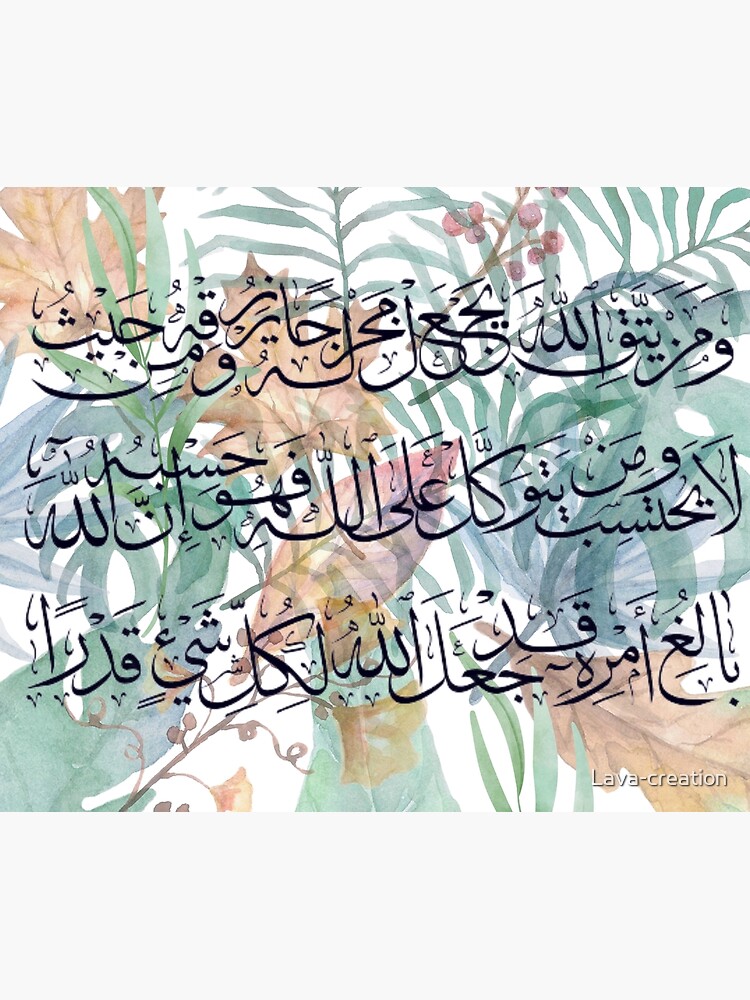 وَمَنْ يَتَّقِ اللَّهَ يَجْعَلْ لَهُ مَخْرَجًا وَيَرْزُقْهُ مِنْ حَيْثُ
لَا يَحْتَسِبُ وَمَنْ يَتَوَكَّلْ عَلَى اللَّهِ فَهُوَ حَسْبُهُ إِنَّ اللَّهَ
بَالِغُ أَمْرِهِ قَدْ جَعَلَ اللَّهُ لِكُلِّ شَيْءٍ قَدْرًا
Lava-creation